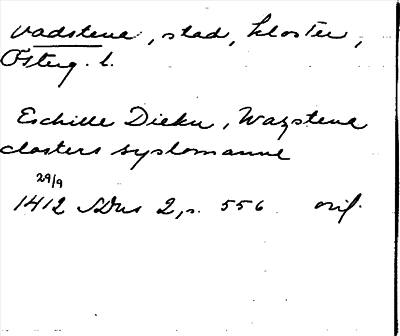 Vadstena, stad, kloster,
Österg. l.
Eschille Dieku, Wazstena
closters syslomanne
29/9
1412 SDns 2, s. 556 orig.